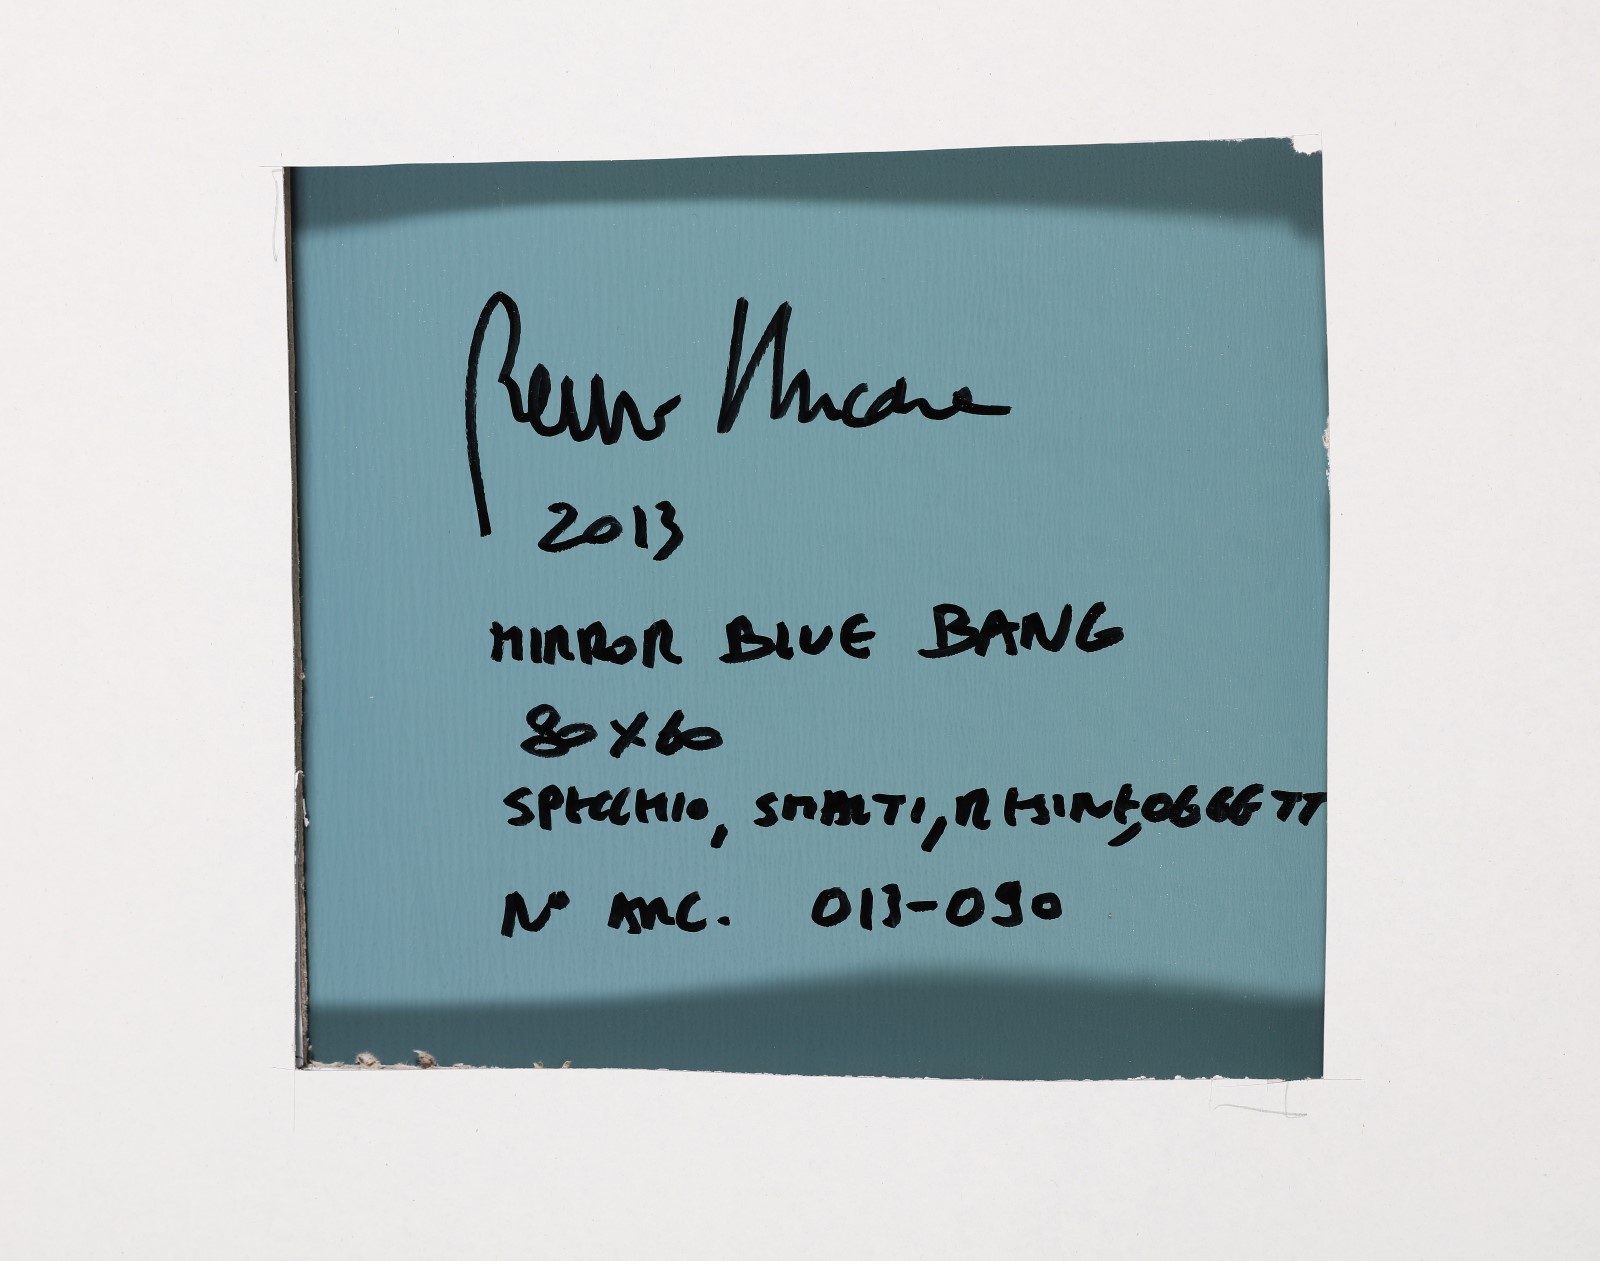 2013
MIRROR BLUE BANG
80X60
SPECCHIO, SMALTI, RESINE, OGGETT
N° ARC. 013-090